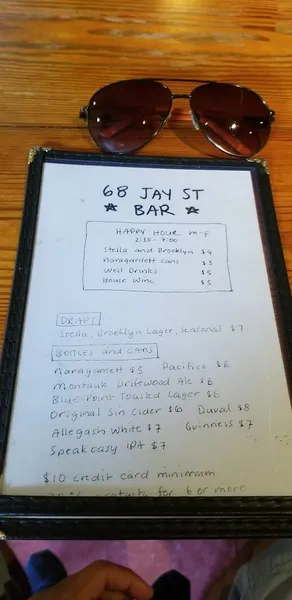 68 JAY ST
★ BAR ★
HAPPY HOUR M-F
2:30 - 7:00
Stella and Brooklyn $4
Naragansett cans $3
Well Drinks $5
House Wine $5
DRAFT
Stella, Brooklyn Lager, Seasonal $7
BOTTLES and CANS
Naragansett $5 Pacifico $6
Montauk Driftwood Ale $6
Blue Point Toasted Lager $6
Original Sin Cider $6 Duval $8
Allegash White $7 Guinness $7
Speakeasy IPA $7
$10 credit card minimum
gratuity for 6 or more